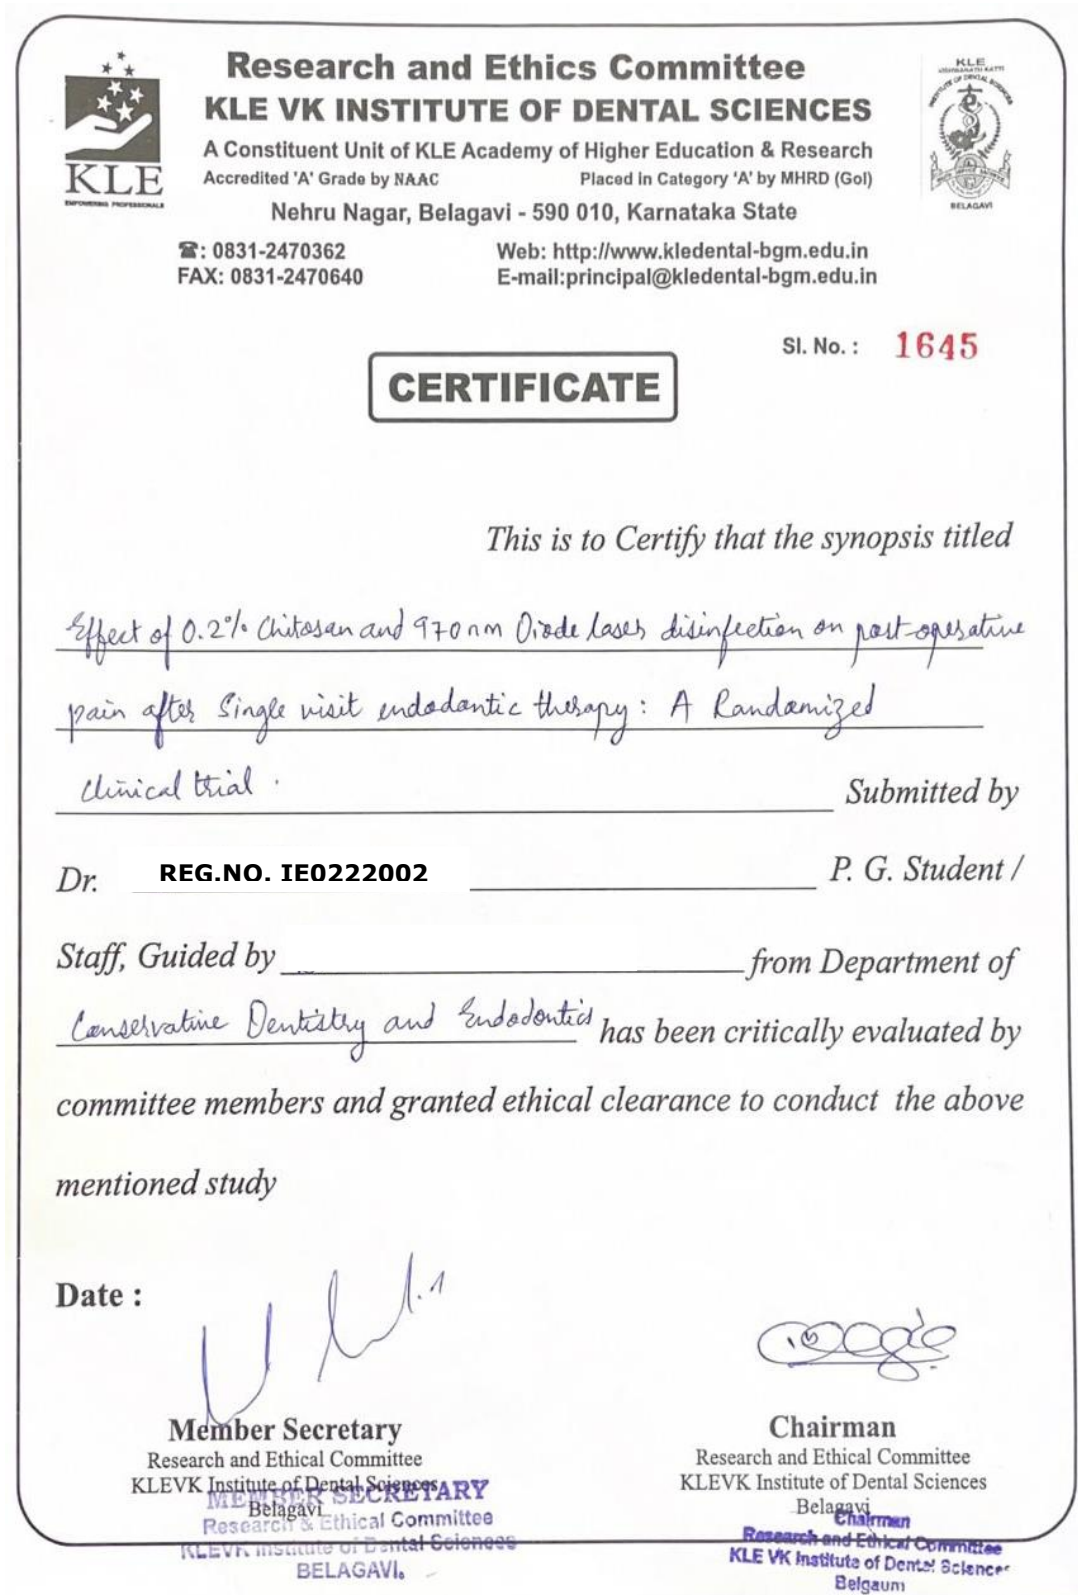 Research and Ethics Committee
KLE VK INSTITUTE OF DENTAL SCIENCES
A Constituent Unit of KLE Academy of Higher Education & Research
Accredited 'A' Grade by NAAC Placed in Category 'A' by MHRD (GoI)
Nehru Nagar, Belagavi - 590 010, Karnataka State
☎: 0831-2470362 Web: http://www.kledental-bgm.edu.in
FAX: 0831-2470640 E-mail:principal@kledental-bgm.edu.in
KLE
EMPOWERING PROFESSIONALS
KLE
VISHWANATH KATTI
INSTITUTE OF DENTAL SCIENCES
BELAGAVI
Sl. No. : 1645
CERTIFICATE
This is to Certify that the synopsis titled
Effect of 0.2% Chitosan and 970 nm Diode laser disinfection on post-operative
pain after Single visit endodontic therapy: A Randomized
Clinical trial. Submitted by
Dr. REG.NO. IE0222002 P. G. Student /
Staff, Guided by from Department of
Conservative Dentistry and Endodontics has been critically evaluated by
committee members and granted ethical clearance to conduct the above
mentioned study
Date :
Member Secretary
Research and Ethical Committee
KLEVK Institute of Dental Sciences
Belagavi
MEMBER SECRETARY
Research & Ethical Committee
KLEVK Institute of Dental Sciences
BELAGAVI.
Chairman
Research and Ethical Committee
KLEVK Institute of Dental Sciences
Belagavi
Chairman
Research and Ethical Committee
KLE VK Institute of Dental Sciences
Belgaum